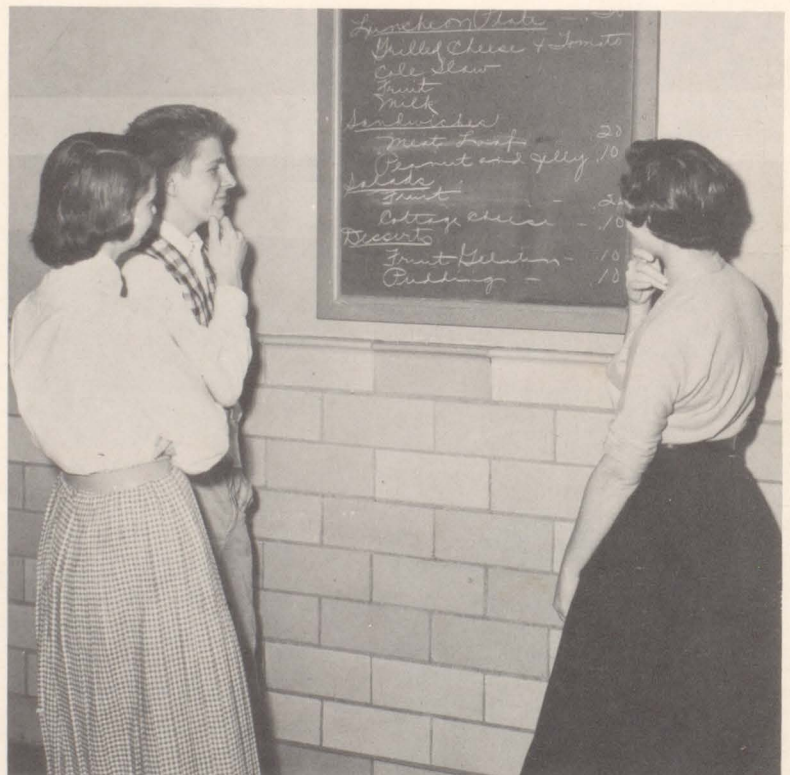 Luncheon Plate -
Grilled Cheese + Tomato
Cole Slaw
Fruit
Milk
Sandwiches
Meat Loaf 20
Peanut and Jelly .10
Salads
Fruit -
Cottage Cheese - .10
Desserts
Fruit Gelatin - .10
Pudding - .10